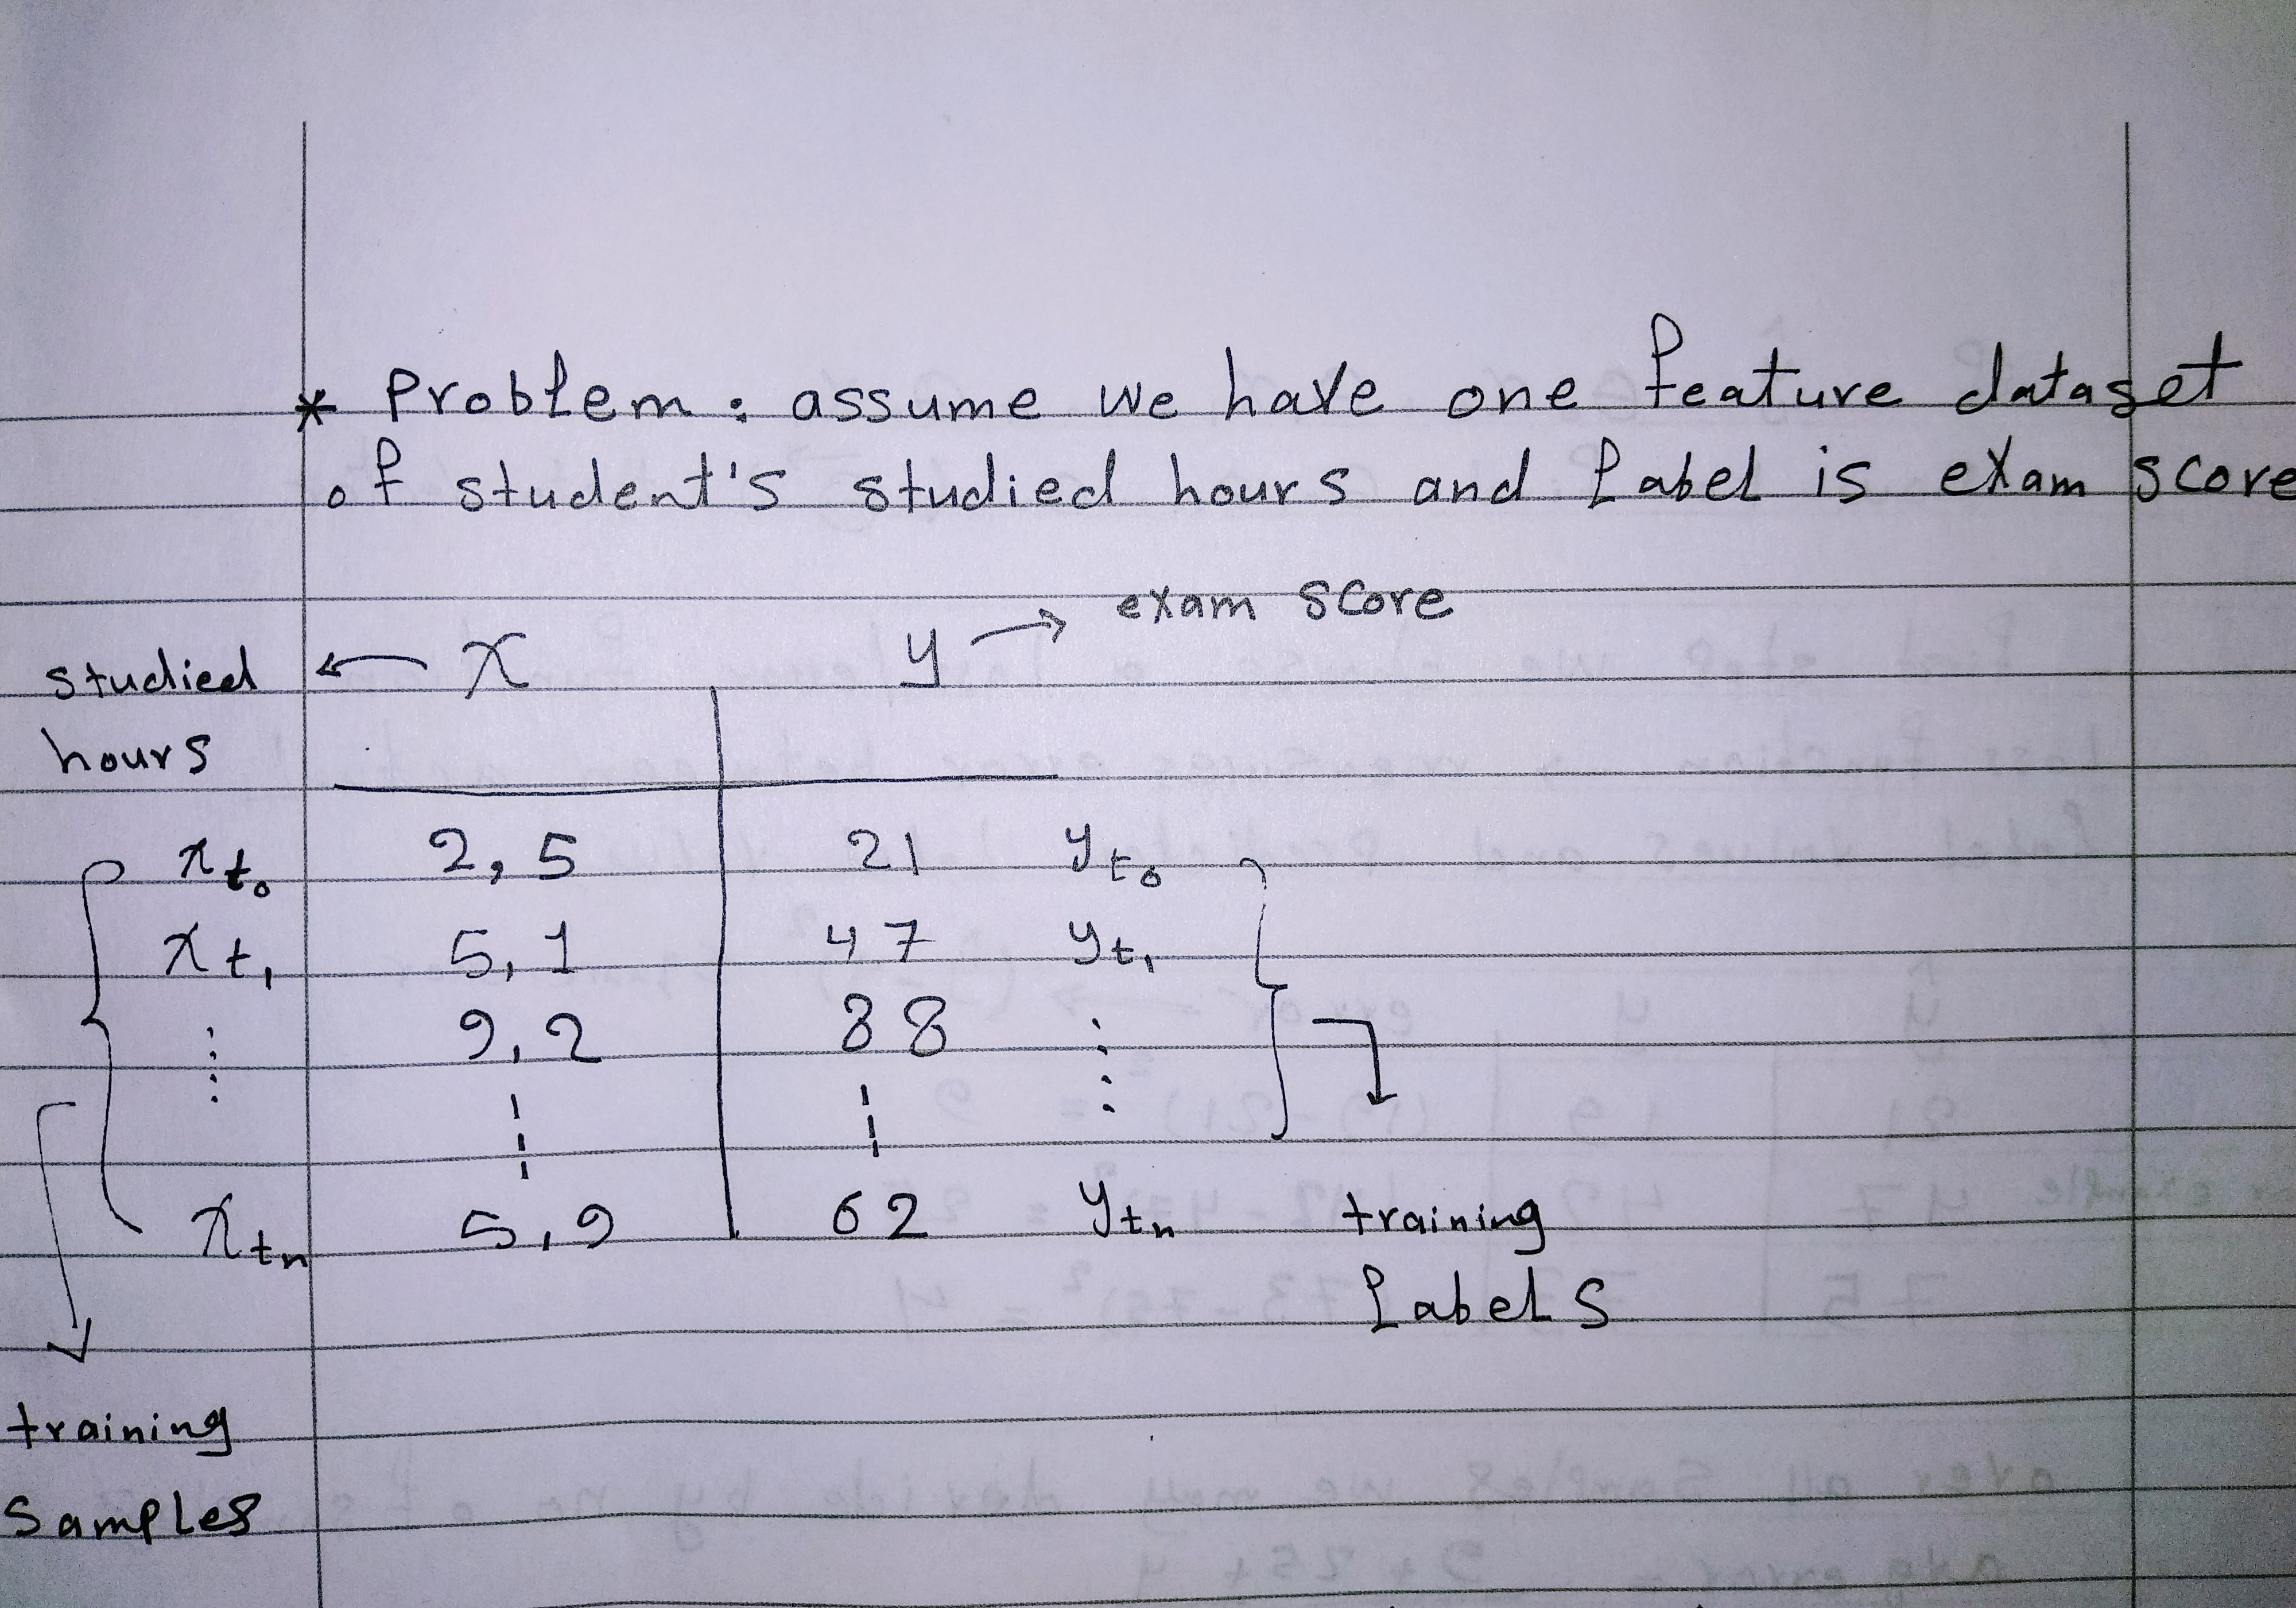 * Problem: assume we have one feature dataset
of student's studied hours and label is exam score
studied hours ← x
y → exam score
x t₀ 2,5 21 y t₀
x t₁ 5,1 47 y t₁
⋮ 9,2 88 ⋮
x tₙ 5,9 62 y tₙ
training labels
training
samples